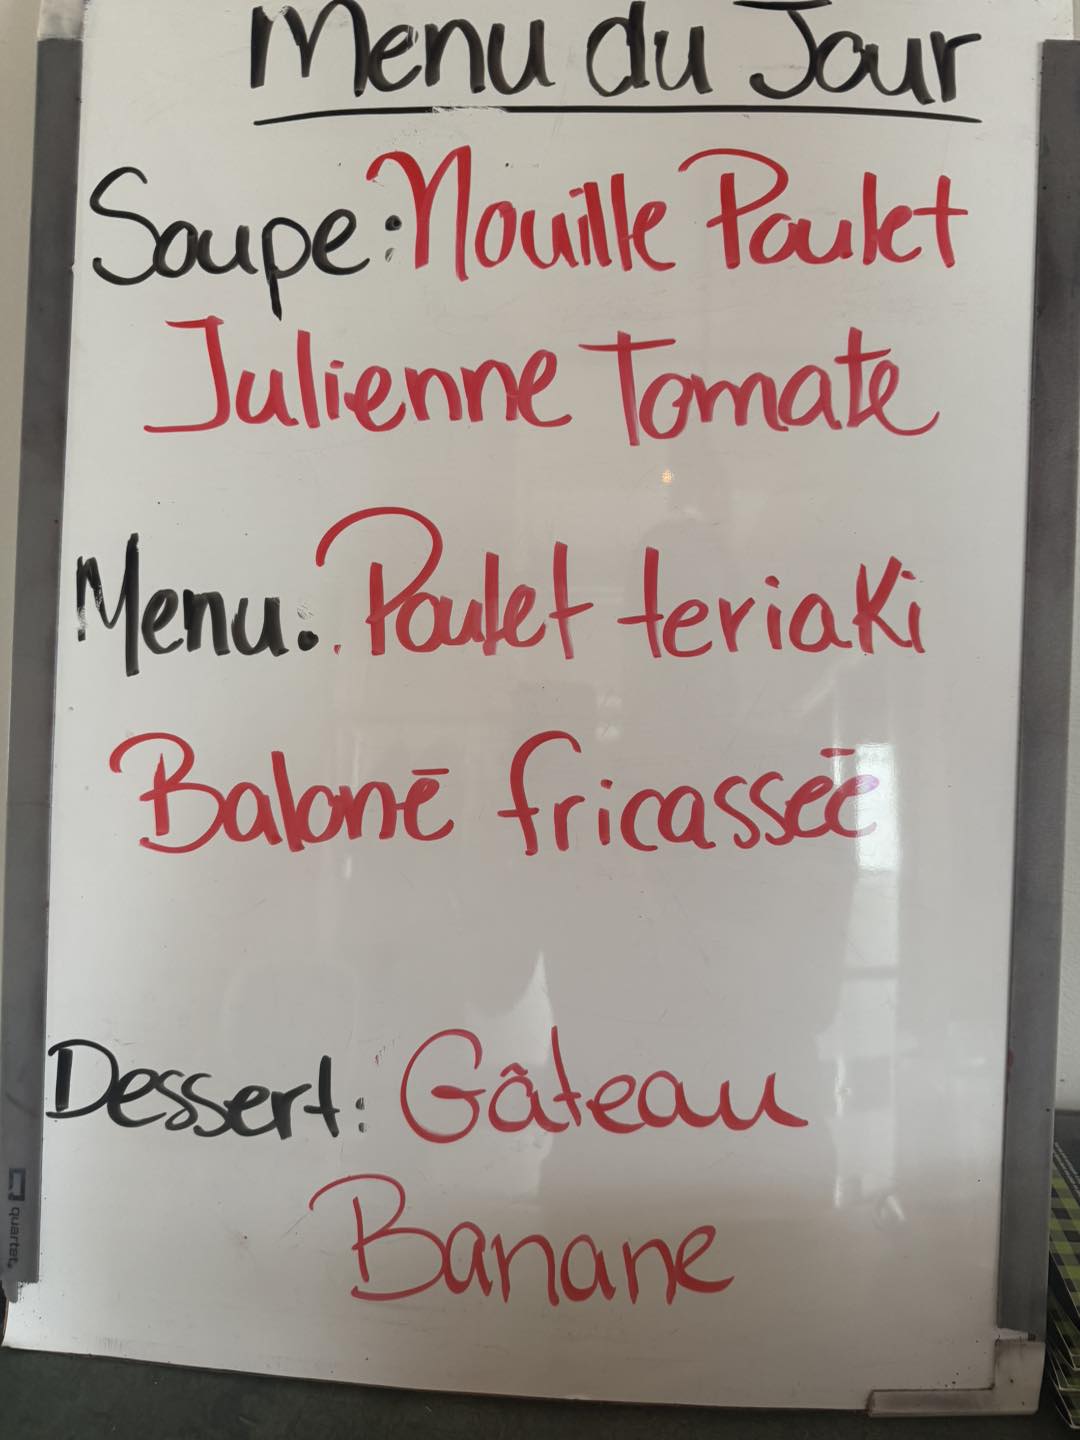 Menu du Jour
Soupe: Nouille Poulet
Julienne Tomate
Menu: Poulet teriaki
Baloné fricasséé
Dessert: Gâteau
Banane
quartet